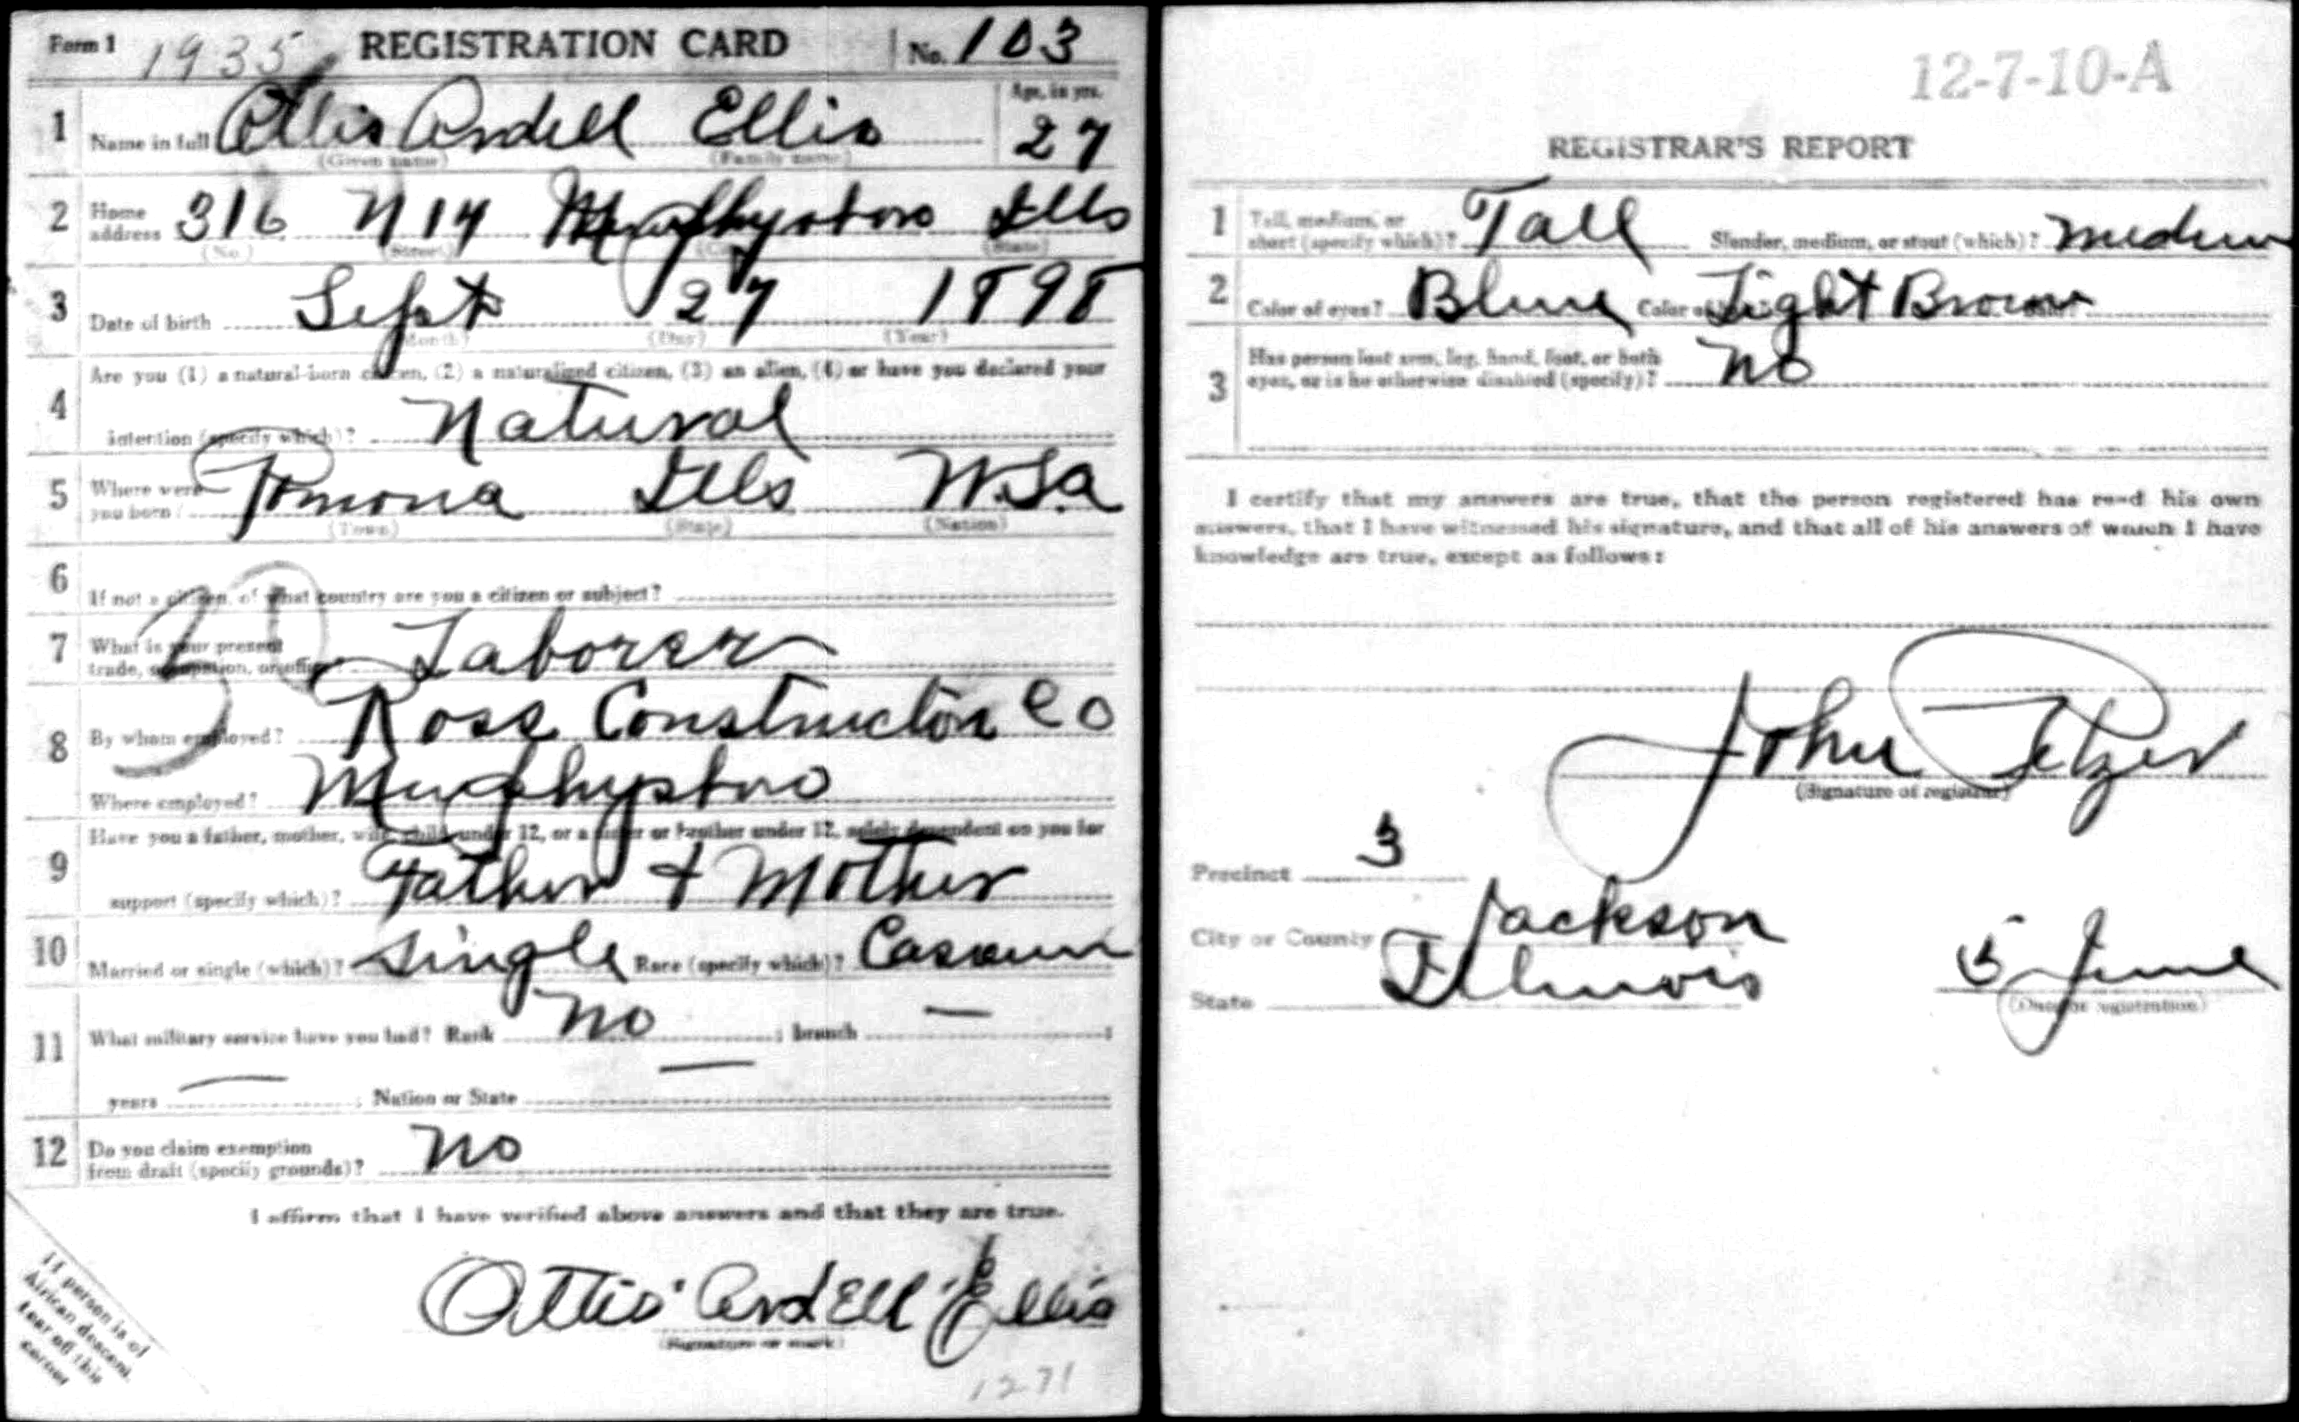 Form 1 1935 REGISTRATION CARD No. 103
1 Name in full Ottis Ardell Ellis Age, in yrs. 27
(Given name) (Family name)
2 Home address 316 N 14 Murphysboro Ills
(No.) (Street) (City) (State)
3 Date of birth Sept 27 1898
(Month) (Day) (Year)
4 Are you (1) a natural-born citizen, (2) a naturalized citizen, (3) an alien, (4) or have you declared your
intention (specify which)? Natural
5 Where were you born? Pomona Ills U.S.a
(Town) (State) (Nation)
6 If not a citizen, of what country are you a citizen or subject?
7 What is your present trade, occupation, or office? Laborer
8 By whom employed? Ross Construction Co
Where employed? Murphysboro
9 Have you a father, mother, wife, child under 12, or a sister or brother under 12, solely dependent on you for
support (specify which)? Father & Mother
10 Married or single (which)? Single Race (specify which)?
11 What military service have you had? Rank No ; branch — ;
years — ; Nation or State —
12 Do you claim exemption from draft (specify grounds)? No
I affirm that I have verified above answers and that they are true.
Ottis Ardell Ellis
(Signature or mark)
If person is of
African descent,
tear off this
corner
1271
12-7-10-A
REGISTRAR'S REPORT
1 Tall, medium, or short (specify which)? Tall Slender, medium, or stout (which)? Medium
2 Color of eyes? Blue Color of Light Brown
3 Has person lost arm, leg, hand, foot, or both eyes, or is he otherwise disabled (specify)? No
I certify that my answers are true, that the person registered has read his own
answers, that I have witnessed his signature, and that all of his answers of which I have
knowledge are true, except as follows:
John Petzer
(Signature of registrar)
Precinct 3
City or County Jackson
State Illinois 5 June
(Date of registration)